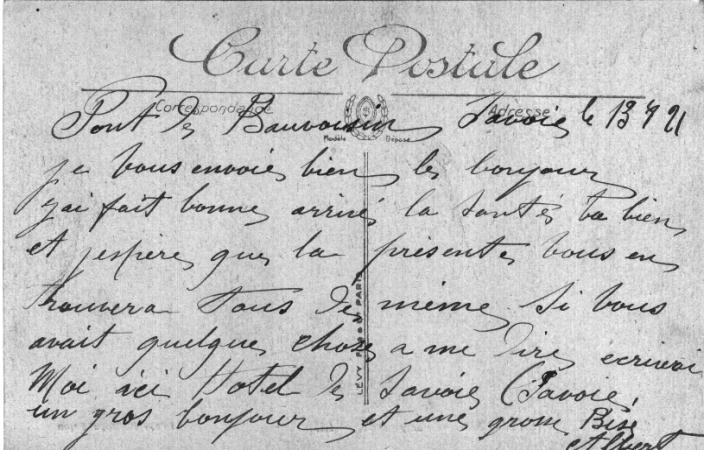 Carte Postale
Correspondance Adresse
Modèle Déposé
Pont de Bauvoisin Savoie le 13 4 21
je vous envoie bien le bonjour
j'ai fait bonne arrivé la santé va bien
et j'espère que la présente vous en
trouvera tous de même si vous
avait quelque chose a me dire ecrivai
Moi ici Hotel de Savoie (Savoie)
un gros bonjour et une grosse Bise
Albert
LÉVY FILS & Cie PARIS